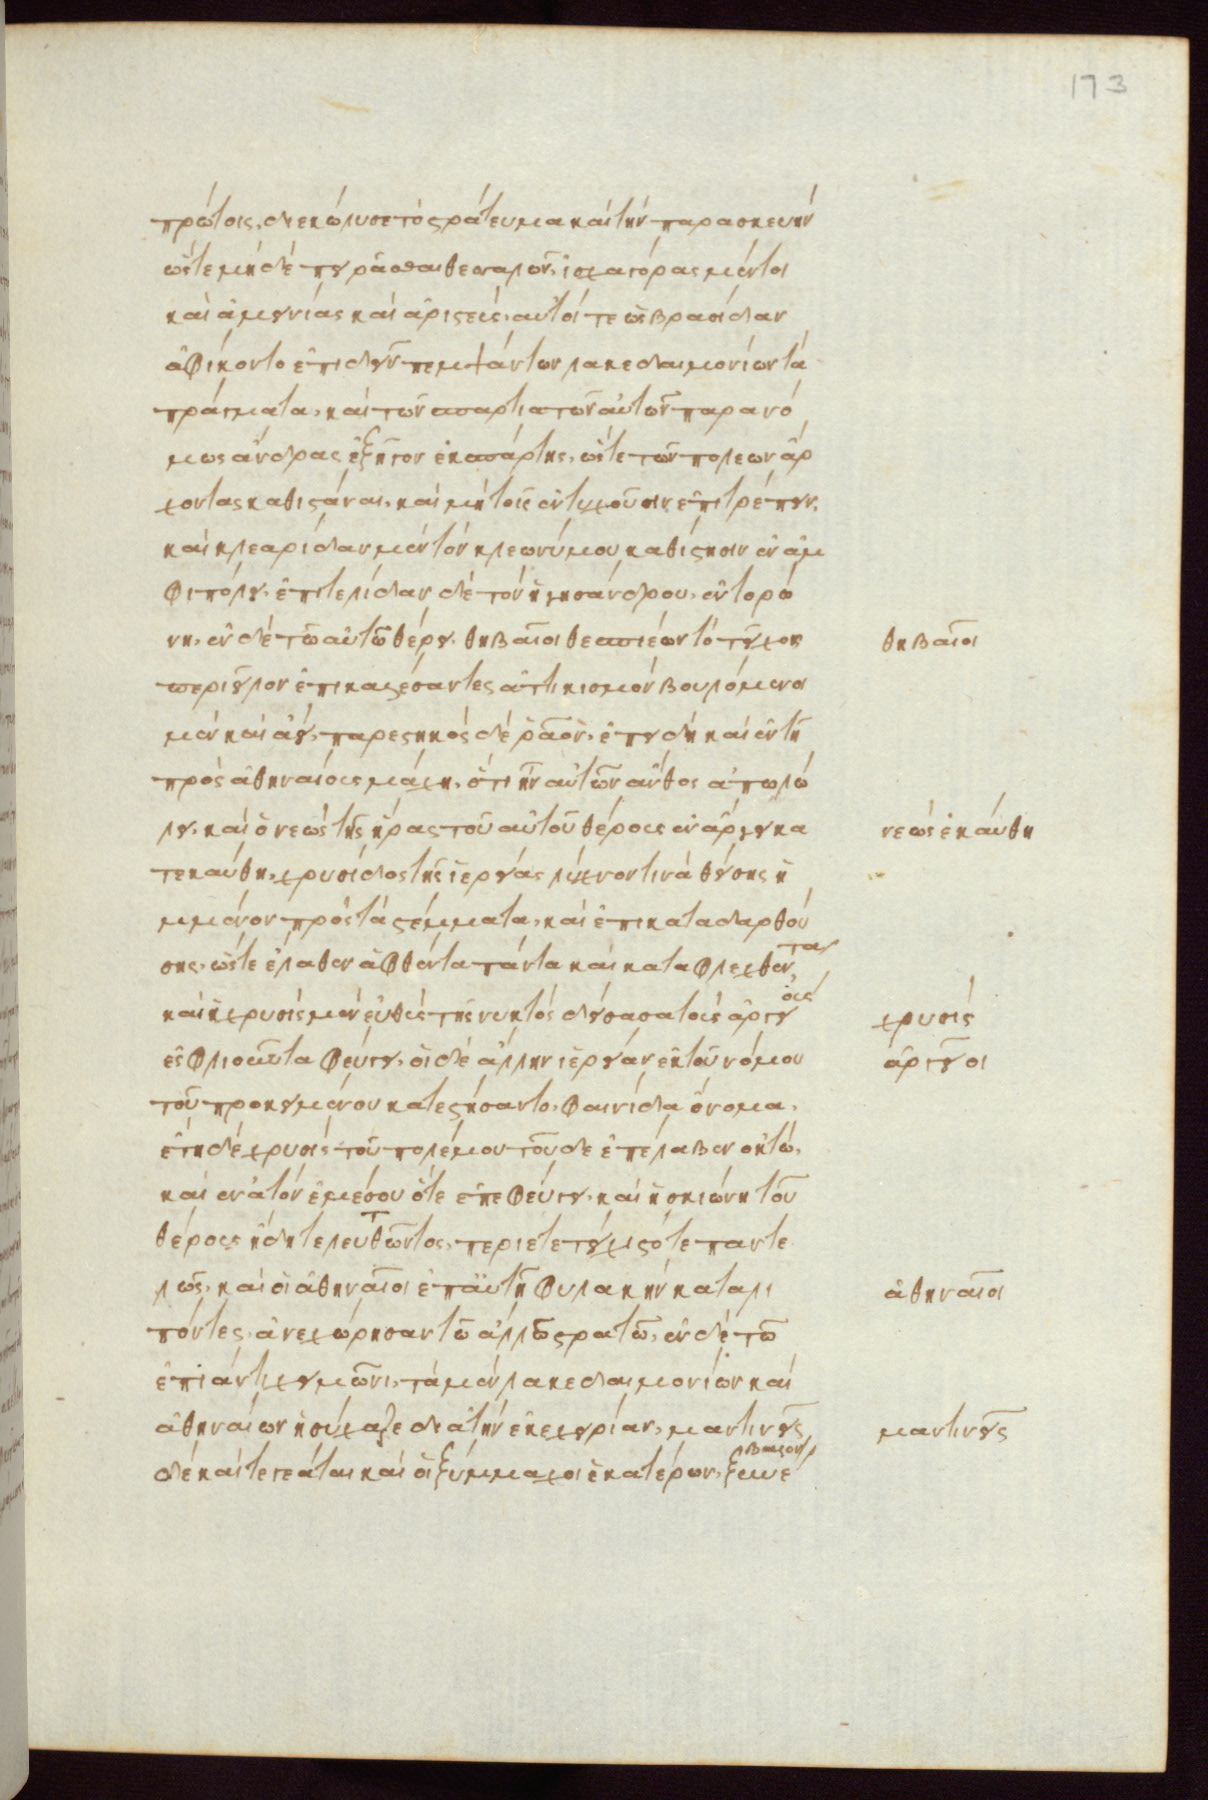 173
πρώτοις, διεκώλυσε τὸ στράτευμα καὶ τὴν παρασκευὴν
ὥστε μηδὲ πειρᾶσθαι θεσσαλῶν. ἰσχαγόρας μέντοι
καὶ ἀμεινίας καὶ ἀριστεὺς αὐτοί τε ὡς βρασίδαν
ἀφίκοντο ἐπιδεῖν πεμψάντων λακεδαιμονίων τὰ
πράγματα, καὶ τῶν σπαρτιατῶν αὐτῶν παρανό
μως ἄνδρας ἐξῆγον ἐκ σπάρτης, ὥστε τῶν πόλεων ἄρ
χοντας καθιστάναι, καὶ μὴ τοῖς ἐντυχοῦσιν ἐπιτρέπειν.
καὶ κλεαρίδαν μὲν τὸν κλεωνύμου καθίστησιν ἐν ἀμ
φιπόλει, ἐπιτελίδαν δὲ τὸν ἡγησάνδρου, ἐν τορώ
νη. ἐν δὲ τῶ αὐτῶ θέρει θηβαῖοι θεσπιέων τὸ τεῖχος
περιεῖλον ἐπικαλέσαντες ἀττικισμὸν βουλόμενοι
μὲν καὶ ἀεί, παρεστηκὸς δὲ ῥᾶον, ἐπειδὴ καὶ ἐν τῆ
πρὸς ἀθηναίους μάχη, ὅτι ἦν αὐτῶν ἄνθος ἀπωλώ
λει. καὶ ὁ νεὼς τῆς ἥρας τοῦ αὐτοῦ θέρους ἐν ἄργει κα
τεκαύθη, χρυσίδος τῆς ἱερείας λύχνον τινὰ θείσης ἡ
μμένον πρὸς τὰ στέμματα, καὶ ἐπικαταδαρθού
σης, ὥστε ἔλαθεν ἀφθέντα πάντα καὶ καταφλεχθέντα,
καὶ ἡ χρυσὶς μὲν εὐθὺς τῆς νυκτὸς δείσασα τοὺς ἀργείους
ἐς φλιοῦντα φεύγει. οἱ δὲ ἄλλην ἱέρειαν ἐκ τοῦ νόμου
τοῦ προκειμένου κατεστήσαντο, φαεινίδα ὄνομα.
ἔτη δὲ χρυσὶς τοῦ πολέμου τοῦδε ἐπέλαβεν ὀκτώ,
καὶ ἔνατον ἐκ μέσου ὅτε ἐπεφεύγει. καὶ ἡ σκιώνη τοῦ
θέρους ἤδη τελευτῶντος, περιετετείχιστό τε παντε
λῶς, καὶ οἱ ἀθηναῖοι ἐπ' αὐτῆ φυλακὴν καταλι
πόντες, ἀνεχώρησαν τῶ ἄλλω στρατῶ. ἐν δὲ τῶ
ἐπιόντι χειμῶνι, τὰ μὲν λακεδαιμονίων καὶ
ἀθηναίων ἡσύχαζε διὰ τὴν ἐκεχειρίαν, μαντινεῖς
δὲ καὶ τεγεᾶται καὶ οἱ ξύμμαχοι ἑκατέρων, ξυνέ
βαλον
θηβαῖοι
νεὼς ἐκαύθη
χρυσὶς
ἀργεῖοι
ἀθηναῖοι
μαντινεῖς